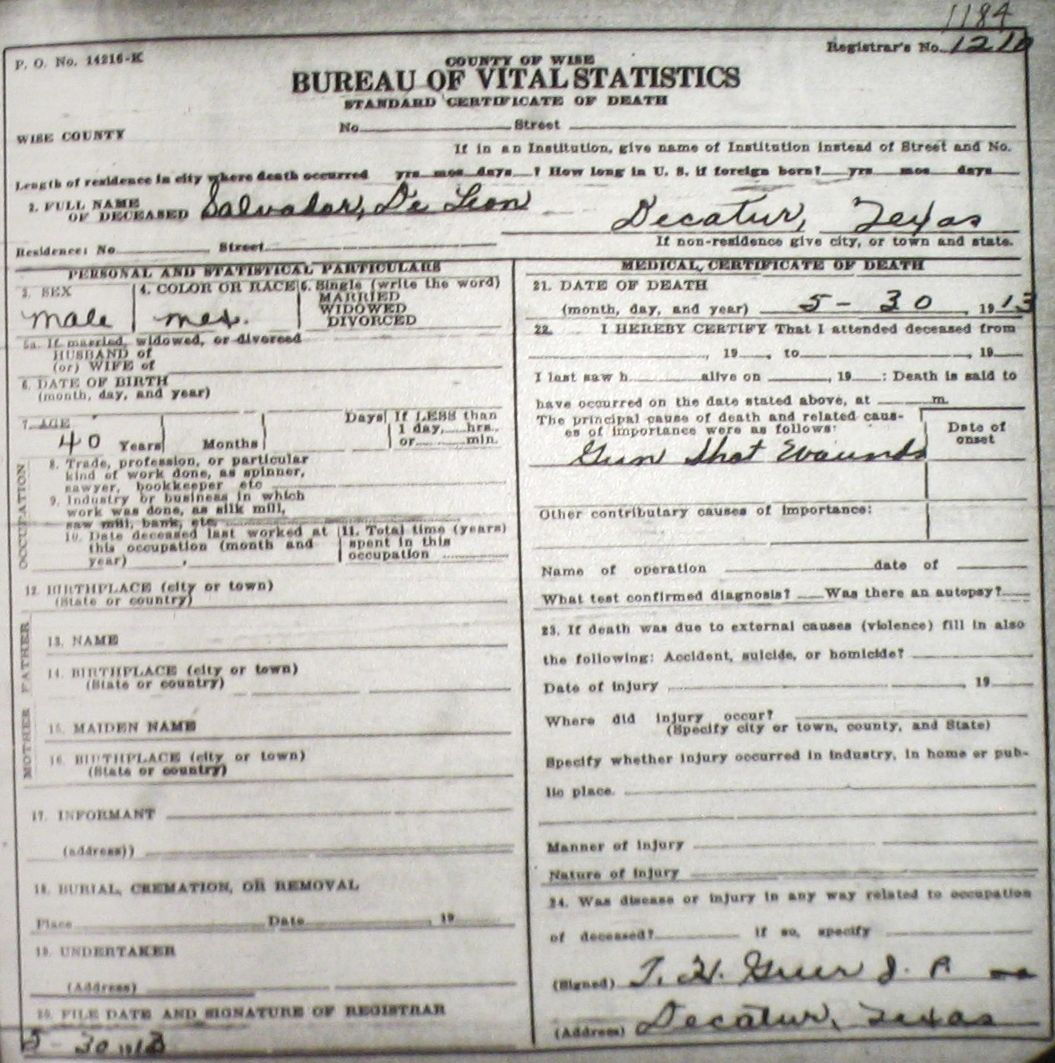 1184
Registrar's No. 1210
P. O. No. 14216-K
COUNTY OF WISE
BUREAU OF VITAL STATISTICS
STANDARD CERTIFICATE OF DEATH
WISE COUNTY
No. Street
If in an Institution, give name of Institution instead of Street and No.
Length of residence in city where death occurred yrs mos days ? How long in U. S. if foreign born? yrs mos days
2. FULL NAME OF DECEASED Salvador, De Leon
Decatur, Texas
Residence: No Street
If non-residence give city, or town and state.
PERSONAL AND STATISTICAL PARTICULARS
3. SEX
male
4. COLOR OR RACE
mex.
5. Single (write the word)
MARRIED
WIDOWED
DIVORCED
5a. If married, widowed, or divorced
HUSBAND of
(or) WIFE of
6. DATE OF BIRTH
(month, day, and year)
7. AGE
40 Years Months Days
If LESS than
1 day, hrs.
or min.
OCCUPATION
8. Trade, profession, or particular
kind of work done, as spinner,
sawyer, bookkeeper etc
9. Industry or business in which
work was done, as silk mill,
saw mill, bank, etc
10. Date deceased last worked at
this occupation (month and
year)
11. Total time (years)
spent in this
occupation
12. BIRTHPLACE (city or town)
(State or country)
FATHER
13. NAME
14. BIRTHPLACE (city or town)
(State or country)
MOTHER
15. MAIDEN NAME
16. BIRTHPLACE (city or town)
(State or country)
17. INFORMANT
(address))
18. BURIAL, CREMATION, OR REMOVAL
Place Date , 19
19. UNDERTAKER
(Address)
20. FILE DATE AND SIGNATURE OF REGISTRAR
5 - 30 1913
MEDICAL CERTIFICATE OF DEATH
21. DATE OF DEATH
(month, day, and year) 5 - 30 1913
22. I HEREBY CERTIFY That I attended deceased from
, 19 , to , 19
I last saw h alive on , 19 : Death is said to
have occurred on the date stated above, at m.
The principal cause of death and related caus-
es of importance were as follows:
Date of
onset
Gun Shot Wounds
Other contributary causes of importance:
Name of operation date of
What test confirmed diagnosis? Was there an autopsy?
23. If death was due to external causes (violence) fill in also
the following: Accident, suicide, or homicide?
Date of injury , 19
Where did injury occur?
(Specify city or town, county, and State)
Specify whether injury occurred in industry, in home or pub-
lic place.
Manner of injury
Nature of injury
24. Was disease or injury in any way related to occupation
of deceased? if so, specify
(Signed) T. H. Greer J. P.
(Address) Decatur, Texas